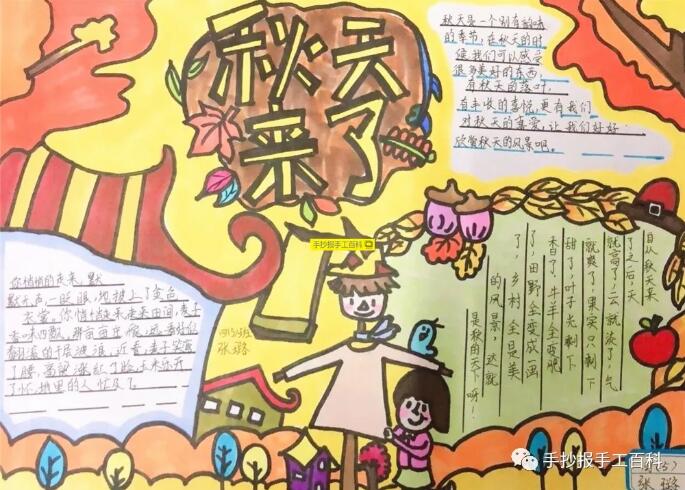 秋天
来了
秋天是一个别有韵味
的季节，在秋天的时
候我们可以感受
很多美好的东西，
有秋天的落叶，
有丰收的喜悦，更有我们
对秋天的喜爱，让我们好好
欣赏秋天的风景吧。
手抄报手工百科
你悄悄的走来，默
默无声，一眨眼，地披上了金色
衣裳。你悄悄走来走来田间，麦子
翻滚的千层波浪，近看，麦子笑弯
了腰，高粱涨红了脸，玉米乐开
了怀，地里的人忙及了
张璐
自从秋天来
了之后，天
就高了，云就淡了，气
就爽了，果实只剩下
甜了，叶子光剩下
香了，牛羊全变肥
了，田野全变成画
了，乡村全是美
的风景，这就
是秋的天下呀！
手抄报手工百科
张璐